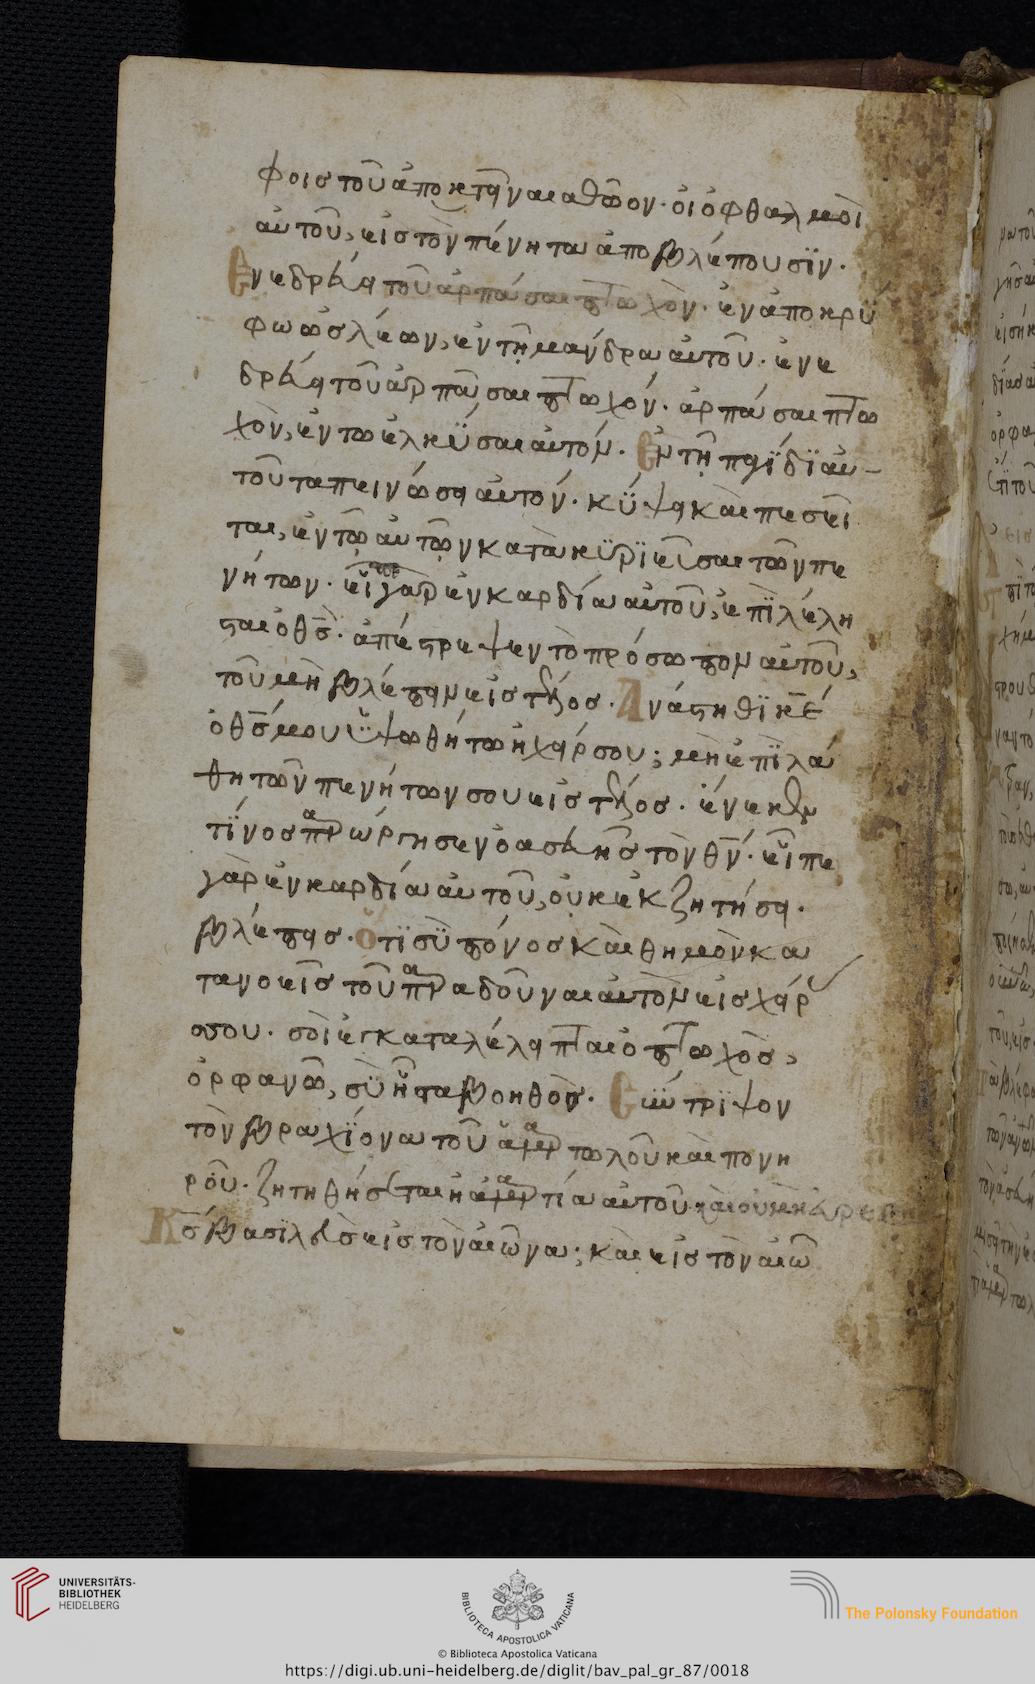 φοις τοῦ ἀποκτεῖναι ἀθῶον· οἱ ὀφθαλμοὶ
αὐτοῦ, εἰς τὸν πένητα ἀποβλέπουσϊν·
Ενεδρεύει τοῦ ἁρπάσαι πτωχὸν· ἐν ἀποκρύ
φω ὡς λέων, ἐν τῆ μάνδρα αὐτοῦ· ἐνε
δρεύει τοῦ ἁρπάσαι πτωχόν· ἁρπάσαι πτω
χὸν, ἐν τω ἑλκΰσαι αὐτόν· Εν τῆ παγίδϊ αὐ-
τοῦ ταπεινώσει αὐτόν· κΰψει καὶ πεσεῖ
ται, ἐν τῶ αὐτῶν κατὰκϋρϊεῦσαι τῶν πε
νήτων· εἶπε γὰρ ἐν καρδία αὐτοῦ, ἐπϊλέλη
σται ὁ θς̅· ἀπέστρεψεν τὸ πρόσωπον αὐτοῦ,
τοῦ μὴ βλέπειν εἰς τέλος· Ανάστηθϊ κε̅
ὁ θς̅ μου ϋψωθήτω ἡ χείρ σου; μὴ ἐπϊλά
θη τῶν πενήτων σου εἰς τέλος· ἕνεκεν
τίνος παρώργησεν ὁ ἀσεβὴς τὸν θν̅· εἶπε
γὰρ ἐν καρδία αὐτοῦ, οὐκ ἐκζητήσει·
βλέπεις· ὅτϊ σϋ πόνος καὶ θημὸν κα
τανοεῖς τοῦ παραδοῦναι αὐτὸν εἰς χεῖρ
ας σου· σοὶ ἐγκαταλέλειπται ὁ πτωχὸς,
ὀρφανῶ, σϋ ἦστα βοηθὸς· Σΰντρϊψον
τὸν βραχϊονα τοῦ ἁμαρτωλοῦ καὶ πονη
ροῦ· ζητηθήσεται ἡ ἁμαρτία αὐτοῦ καὶ οὐ μὴ εὑρεθῆ
Κς̅ βασϊλεὺς εἰς τὸν αἰῶνα; καὶ εἰς τὸν αἰῶ
UNIVERSITÄTS-
BIBLIOTHEK
HEIDELBERG
BIBLIOTECA APOSTOLICA VATICANA
The Polonsky Foundation
© Biblioteca Apostolica Vaticana
https://digi.ub.uni-heidelberg.de/diglit/bav_pal_gr_87/0018